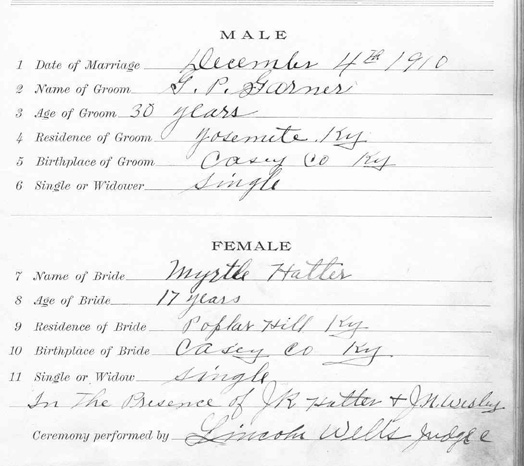 MALE
1 Date of Marriage December 4th 1910
2 Name of Groom G. P. Garner
3 Age of Groom 30 years
4 Residence of Groom Yosemite Ky
5 Birthplace of Groom Casey Co Ky
6 Single or Widower Single
FEMALE
7 Name of Bride Myrtle Hatter
8 Age of Bride 17 years
9 Residence of Bride Poplar Hill Ky
10 Birthplace of Bride Casey Co Ky
11 Single or Widow Single
In The Presence of J R Hatter & J N Wesley
Ceremony performed by Lincoln Wells Judge